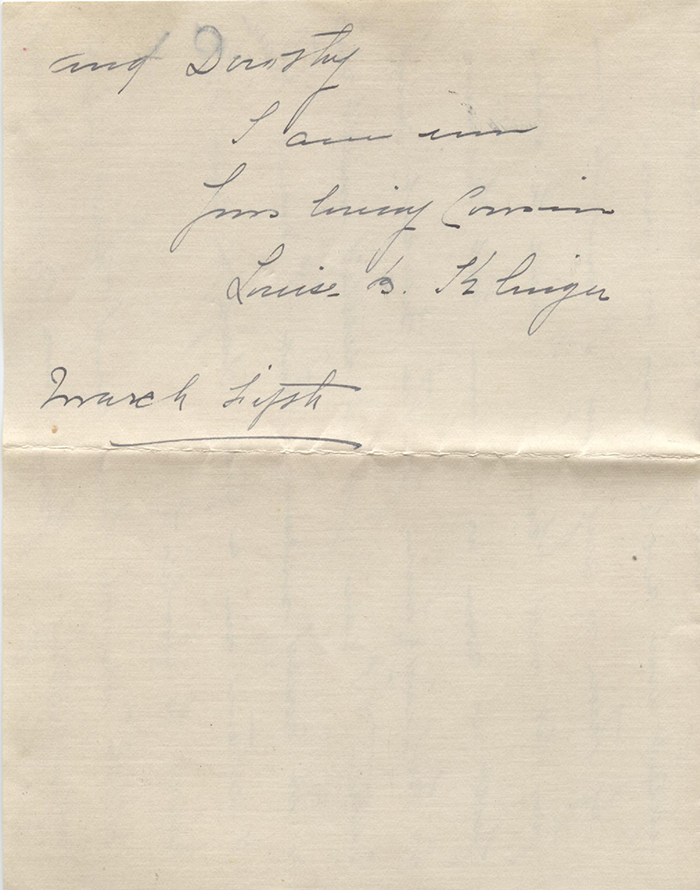 and Dorothy
I am ever
Your loving Cousin
Louise B. Klinger
March Fifth